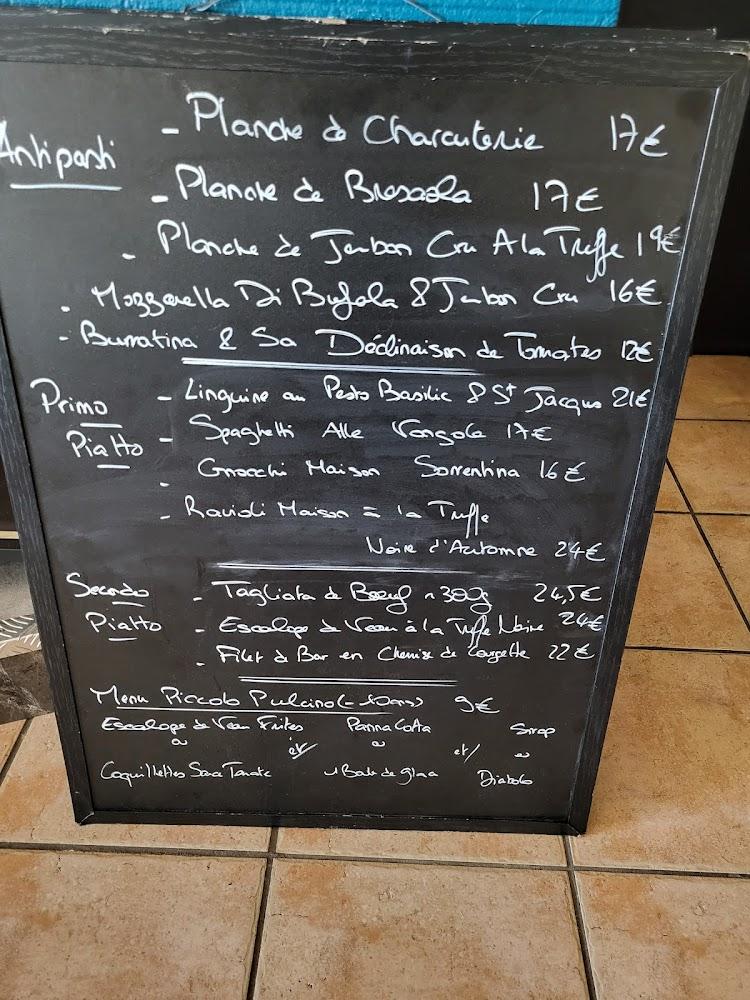 Antipasti
- Planche de Charcuterie 17€
- Planche de Bresaola 17€
- Planche de Jambon Cru A la Truffe 19€
- Mozzarella Di Bufala & Jambon Cru 16€
- Burratina & Sa Déclinaison de Tomates 12€
Primo - Linguine au Pesto Basilic & St Jacques 21€
Piatto - Spaghetti Alle Vongole 17€
- Gnocchi Maison Sorrentina 16€
- Ravioli Maison à la Truffe
Noire d'Automne 24€
Secondo - Tagliata de Boeuf ~300g 24,5€
Piatto - Escalope de Veau à la Truffe Noire 24€
- Filet de Bar en Chemise de Courgette 22€
Menu Piccolo Pulcino (- 10ans) 9€
Escalope de Veau Frites Panna Cotta Sirop
ou et ou et/ ou
Coquillettes Sauce Tomate 1 Boule de glace Diabolo